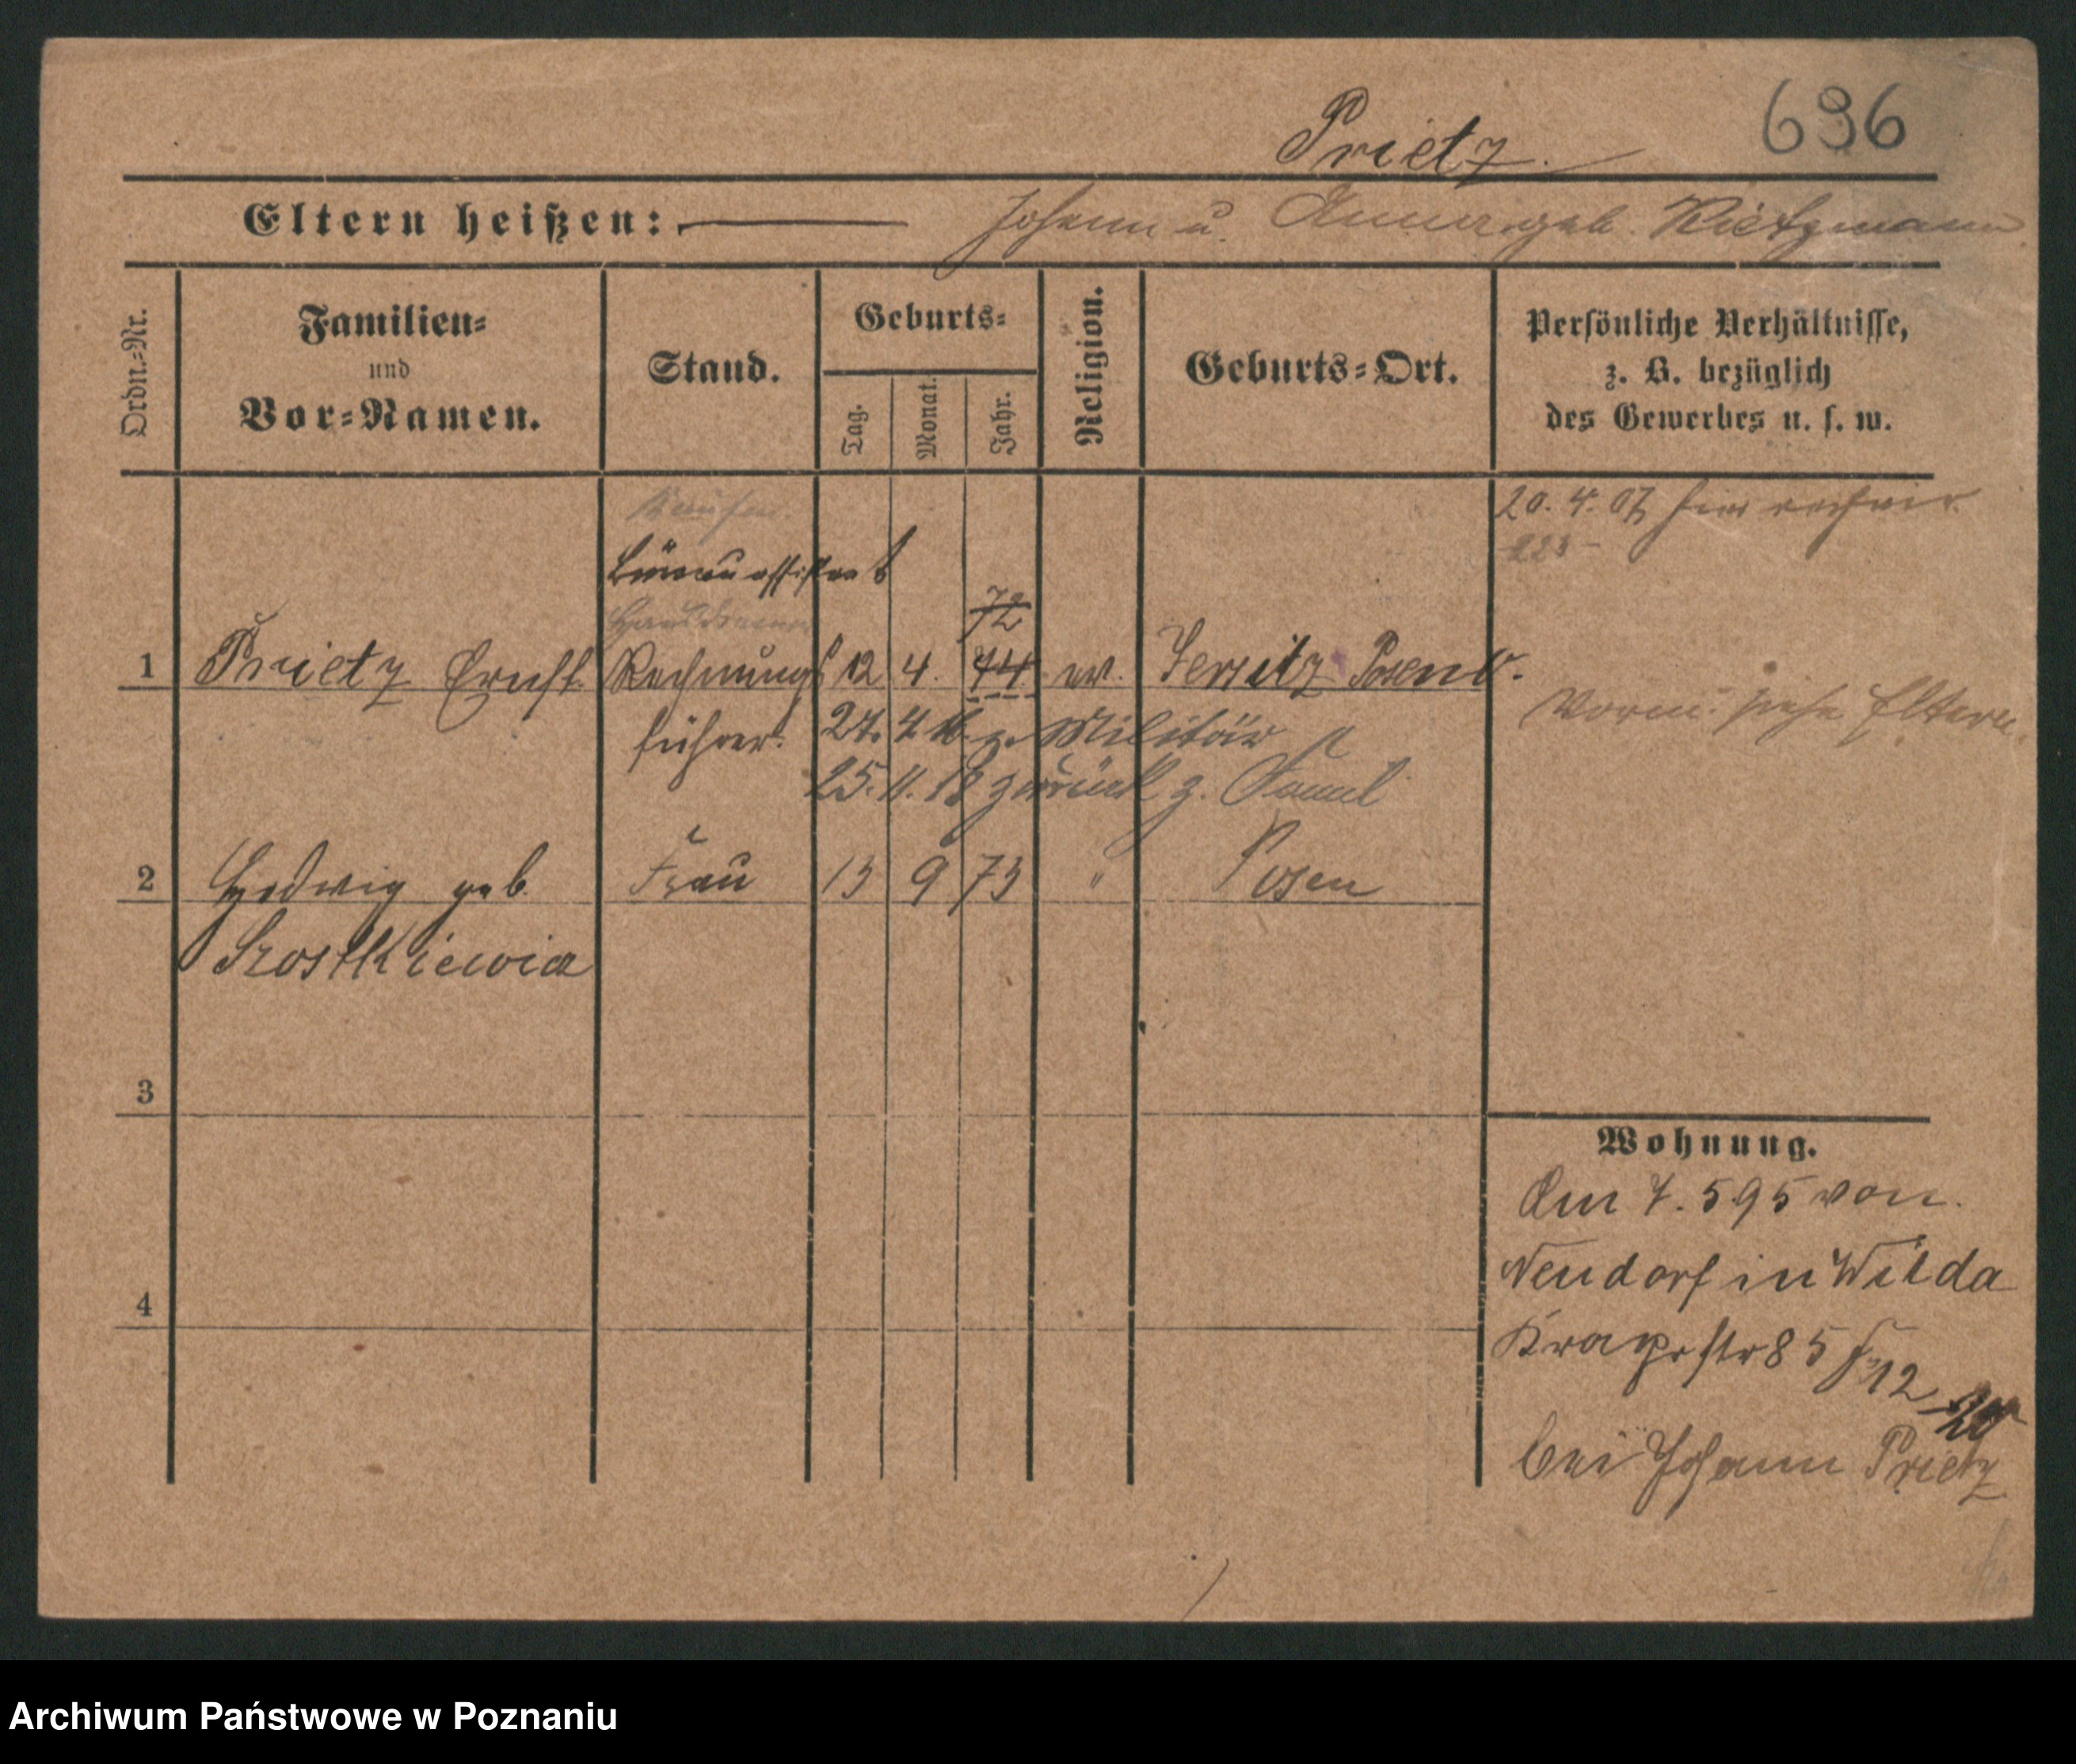 Prietz.
636
Eltern heißen: Johann u. Anna geb. Rietzmann
Ordn.=Nr.
Familien=
und
Vor=Namen.
Stand.
Geburts=
Tag.
Monat.
Jahr.
Religion.
Geburts=Ort.
Persönliche Verhältnisse,
z. B. bezüglich
des Gewerbes u. s. w.
20. 4. 07 hier
Büreauassistent
72
1 Prietz Ernst Rechnungs 12 4. 74 ev. Jersitz Posen
führer.
Vorm. siehe Eltern.
27. 4. z. Militär
25. 11. 18 zurück z. Famil
2 Hedwig geb. Frau 13 9 73 " Posen
Szostkiewicz
3
4
Wohnung.
Am 7. 5 95 von
Neudorf in Wilda
85
12
bei Johann Prietz
Archiwum Państwowe w Poznaniu